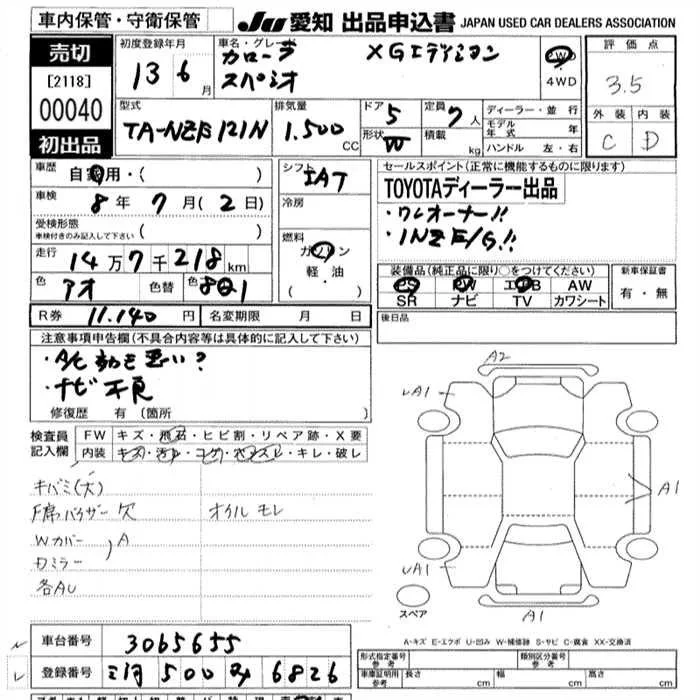 車内保管・守衛保管
JU 愛知 出品申込書 JAPAN USED CAR DEALERS ASSOCIATION
売切
[2118]
00040
初出品
初度登録年月
13 6月
車名・グレード
カローラ XGエディション
スパシオ
4WD
評価点
3.5
外装 内装
C D
型式
TA-NZE121N
排気量
1.500 CC
ドア 5
形状 W
定員 7人
積載 kg
ディーラー・並行
モデル年式 年
ハンドル 左・右
車歴
自家用・( )
車検
8年 7月(2日)
受検形態
車検付きのみ記入して下さい ( )
走行
14万7千218km
色 アオ 色替 色 8Q1
シフト IAT
冷房
燃料
ガソリン
軽・油
( ・ )
セールスポイント(正常に機能するものに限ります)
TOYOTAディーラー出品
・ワンオーナー!!
・1NZ E/G!!
装備品(純正品に限り○をつけてください)
PS PW エアB AW
SR ナビ TV カワシート
新車保証書
有・無
R券 11.140円 名変期限 月 日
後日品
注意事項申告欄(不具合内容等は具体的に記入して下さい)
・A/C 効き悪い?
・ナビ不良
修復歴 有 〔箇所 〕
検査員記入欄
FW キズ・飛石・ヒビ割・リペア跡・X要
内装 キズ・汚れ・コゲ・ ・キレ・破レ
キバミ(大)
F席バイザー欠 オイルモレ
Wカバー
Dミラー ) A
各AU
A2
A1
A1
A1
A1
スペア
A-キズ E-エクボ U-凹み W-補修跡 S-サビ C-腐食 XX-交換済
車台番号 3065655
登録番号 三河 500 6826
形式指定番号 参考
類別区分番号 参考
車庫証明用 参考 長さ cm 幅 cm 高さ cm